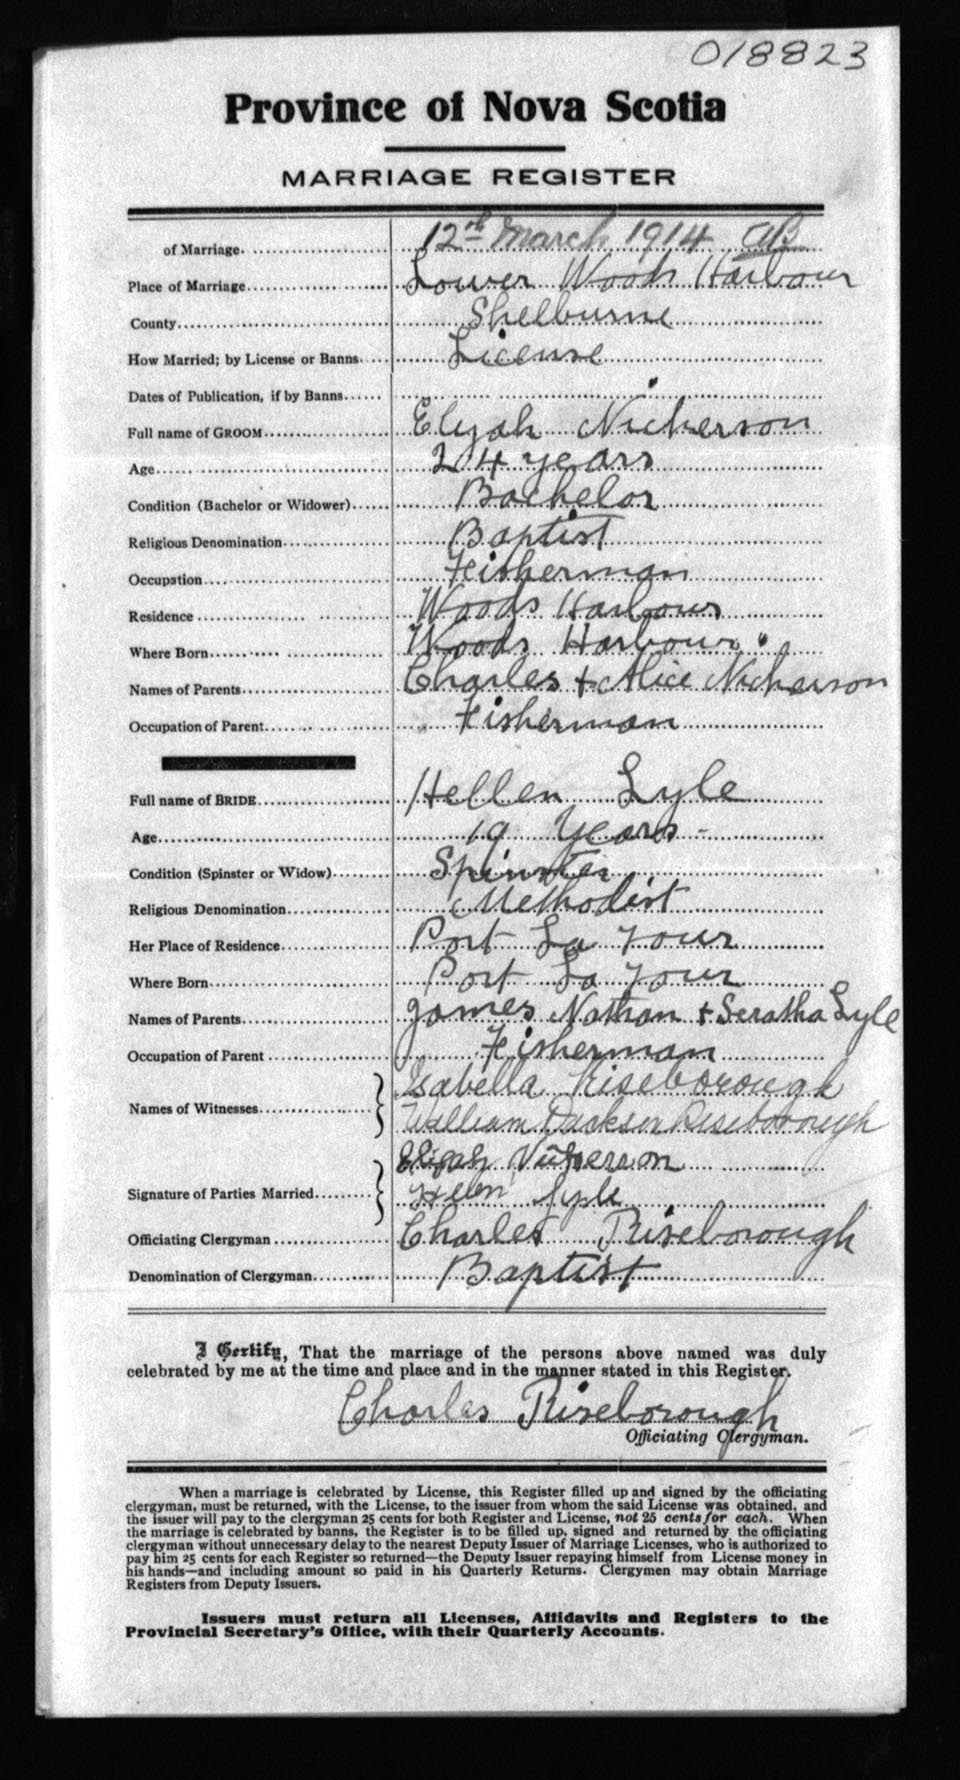 018823
Province of Nova Scotia
MARRIAGE REGISTER
of Marriage 12th March 1914 AB
Place of Marriage Lower Woods Harbour
County Shelburne
How Married; by License or Banns License
Dates of Publication, if by Banns
Full name of GROOM Elijah Nickerson
Age 24 years
Condition (Bachelor or Widower) Bachelor
Religious Denomination Baptist
Occupation Fisherman
Residence Woods Harbour
Where Born Woods Harbour
Names of Parents Charles + Alice Nickerson
Occupation of Parent Fisherman
Full name of BRIDE Hellen Lyle
Age 19 Years
Condition (Spinster or Widow) Spinster
Religious Denomination Methodist
Her Place of Residence Port La Tour
Where Born Port La Tour
Names of Parents James Nathan + Seratha Lyle
Occupation of Parent Fisherman
Isabella Riseborough
Names of Witnesses
William Jackson Riseborough
Elijah Nickerson
Signature of Parties Married Helen Lyle
Officiating Clergyman Charles Riseborough
Denomination of Clergyman Baptist
I Certify, That the marriage of the persons above named was duly
celebrated by me at the time and place and in the manner stated in this Register.
Charles Riseborough
Officiating Clergyman.
When a marriage is celebrated by License, this Register filled up and signed by the officiating
clergyman, must be returned, with the License, to the issuer from whom the said License was obtained, and
the issuer will pay to the clergyman 25 cents for both Register and License, not 25 cents for each. When
the marriage is celebrated by banns, the Register is to be filled up, signed and returned by the officiating
clergyman without unnecessary delay to the nearest Deputy Issuer of Marriage Licenses, who is authorized to
pay him 25 cents for each Register so returned—the Deputy Issuer repaying himself from License money in
his hands—and including amount so paid in his Quarterly Returns. Clergymen may obtain Marriage
Registers from Deputy Issuers.
Issuers must return all Licenses, Affidavits and Registers to the
Provincial Secretary's Office, with their Quarterly Accounts.